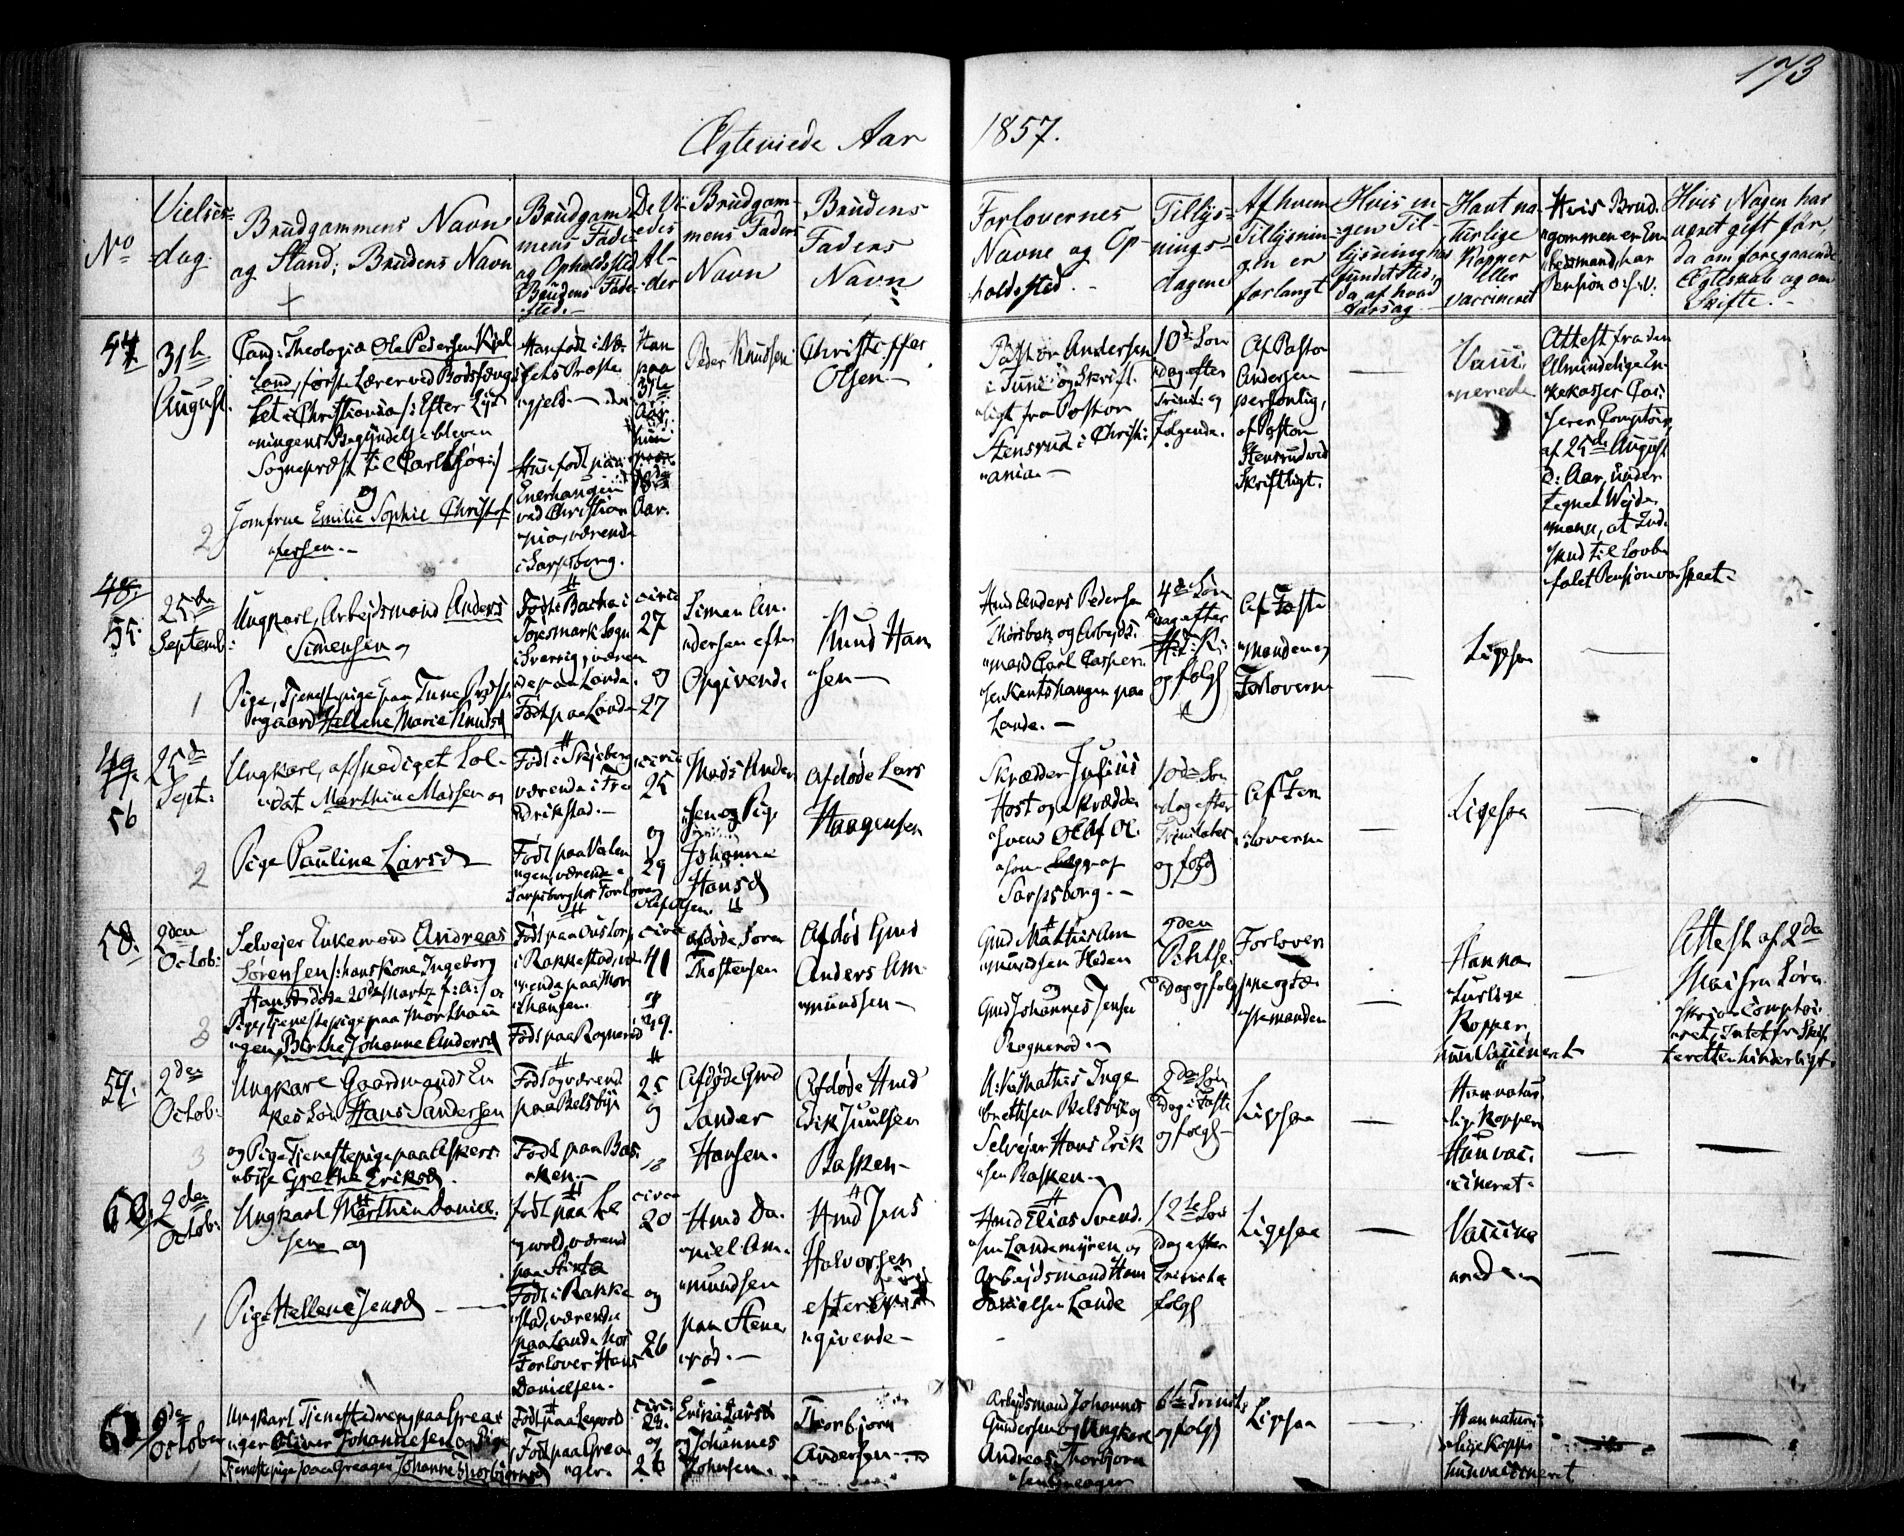 173
Ægteviede Aar 1857.
No
Vielses-
dag.
Brudgommens Navn
og Stand; Brudens Navn
Brudgom-
mens Føde-
og Opholdssted
Brudens Føde-
sted.
De Vi-
edes
Al-
der
Brudgom-
mens Faders
Navn
Brudens
Faders
Navn
Forlovernes
Navne og Op-
holdssted.
Tillys-
nings-
dagene
Af hvem
Tillysnin-
gen er
forlangt
Hvis in-
gen Til-
lysning har
fundet sted,
da af hvad
Aarsag
Havt na-
turlige
Kopper
eller
vaccineret
Hvis Brud-
gommen er Em-
bedsmand, har
Pension o: s: v:
Hvis Nogen har
været gift før,
da om foregaaende
Ægteskab og om
Skifte.
54
31te
August.
Cand: Theologia Ole Pedersen
Land, første Lærer ved Bodsfæng-
let i Christiania /: efter Lys-
ningens Begyndelse bleven
Sognepræst til
og
Jomfrue Emilie Sophie Christof-
fersen.
2
Han født i
Hun født paa
Enerhaugen
ved Christian-
nia, værende
i Sarpsborg.
Han
paa
Aar
hun
Aar.
Peder Knudsen
Christoffer
Olsen
Pastor Andersen
i Tune og Skrift-
ligt fra Pastor
Stensrud i Christi-
ania
10de Søn-
dag efter
Trinit: og
følgende.
Af Pastor
Andersen
personlig,
af Pastor
Stensrud ved
Skriftligt.
Vacci-
nerede
Attest fra den
Almindelige En-
kekasses Cas-
serer Comptoir
af 25de August
d: Aar, under-
tegnet
mann, at Ind-
skud til Lovbe-
falet Pension
48.
55.
25de
Septemb:
Ungkarl, Arbejdsmand Anders
Simensen og
Pige, Tjenestepige paa Tune Præste-
gaard Hellene Marie Knudsd
1
Født i
i Sverrig, væren-
de paa Lande.
Født paa Lande
circa
27
og
27
Simen An-
dersen efter
Opgivende
Knud Han-
sen
Hmd Anders Pedersen
og Arbejds-
mand Carl Casper-
sen paa
Lande.
4de Søn-
dag efter
H: T: K:
og følg
Af Fæste-
manden og
Forloverne
Ligesaa
49.
56
25de
Sept:
Ungkarl, afskediget Sol-
dat Marthin Madsen og
Pige Pauline Larsd
2
Født i Skjeberg
værende i Fre-
drikstad.
Født paa Valen-
gen, værende i
Sarpsborg hos Forlover
Olaf Olsen.
circa
25
og
29
Mads Ander-
sen og Pige
Johanne
Hansd
Afdøde Lars
Haagensen
Skrædder Julius
Høst og Skrædder-
svend Olaf Ol-
sen af
Sarpsborg.
10de Søn-
dag efter
Trinitatis
og følg
Af For-
loverne
Ligesaa
58.
2den
Octob:
Selvejer Enkemand Andreas
Sørensen /: hans Kone Ingeborg
Hansd døde 20de Martz
Pige, Tjenestepige paa Morthau-
gen, Birthe Johanne Andersd
3
Født paa
i Rakkestad, væ-
rende paa Mor-
thaugen.
Født paa Rognerød
circa
41
og
29.
Afdøde Søren
Thostensen
Afdøde Gmd
Anders Am-
mundsen
Gmd Mathis Am-
mundsen Heden
og
Gmd Johannes Jensen
Rognerød.
Pintse-
dag og følg
Forlover-
ne og Fæ-
stemanden
Han na-
turlige
Kopper,
hun Vaccineret
Attest af 2de
Mai fra Soren-
skriver Comptoi-
ret, Intet fra Skif-
teretten hinderligt.
59.
2den
Octob:
Ungkarl Gaardmands En-
kes Søn Hans Sandersen
og Pige Tjenestepige paa Askers-
bye Grethe Eriksd.
3
Født og værend
paa Belsbye
Født paa Bas-
ken.
25
og
18
Afdøde Gmd
Sander
Hansen.
Afdøde Hmd
Erik Juulsen
Basken
Mathis Inge-
brethsen Belsbye og
Selvejer Hans Erik-
sen Basken
2den Søn-
dag i Faste
og følg
Ligesaa
Han natur-
lige Kopper
Hun vac-
cineret.
60.
2den
Octob:
Ungkarl Marthin Daniel-
sen og
Pige Hellene Jensd
1
Født paa
værend
paa
Født i Rakke-
stad, værende
paa Lande hos
Forlover Hans
Danielsen.
circa
20
og
26
Hmd Da-
niel Am-
mundsen
paa Stene-
rød.
Hmd Jens
Halvorsen
efter Op-
givende
Hmd Elias Svend-
sen Landemyren og
Arbejdsmand Hans
Danielsen Lande
12te Søn-
dag efter
Trinit:
følg
Ligesaa
Vaccine-
rede
61
2de
October
Ungkarl Tjenestedreng paa Greaa-
ger Oliver Johannesen og Pige
Tjenestepige paa Greager Johanne Thorbjørnsd
1
Født paa
Født paa Greaa-
ger.
circa
og
26
Larsd
og Johannes
Johnsen.
Thorbjørn
Andersen
Arbejdsmand Johannes
Gundersen og Ungkarl
Andreas Thorbjørn-
sen Greager
6te Trinit:
og følg
Ligesaa
Han natur-
lige Kopper
hun vaccineret